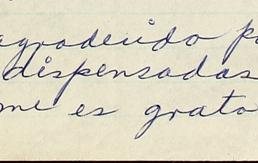 agradecido p
dispensadas
me es grato